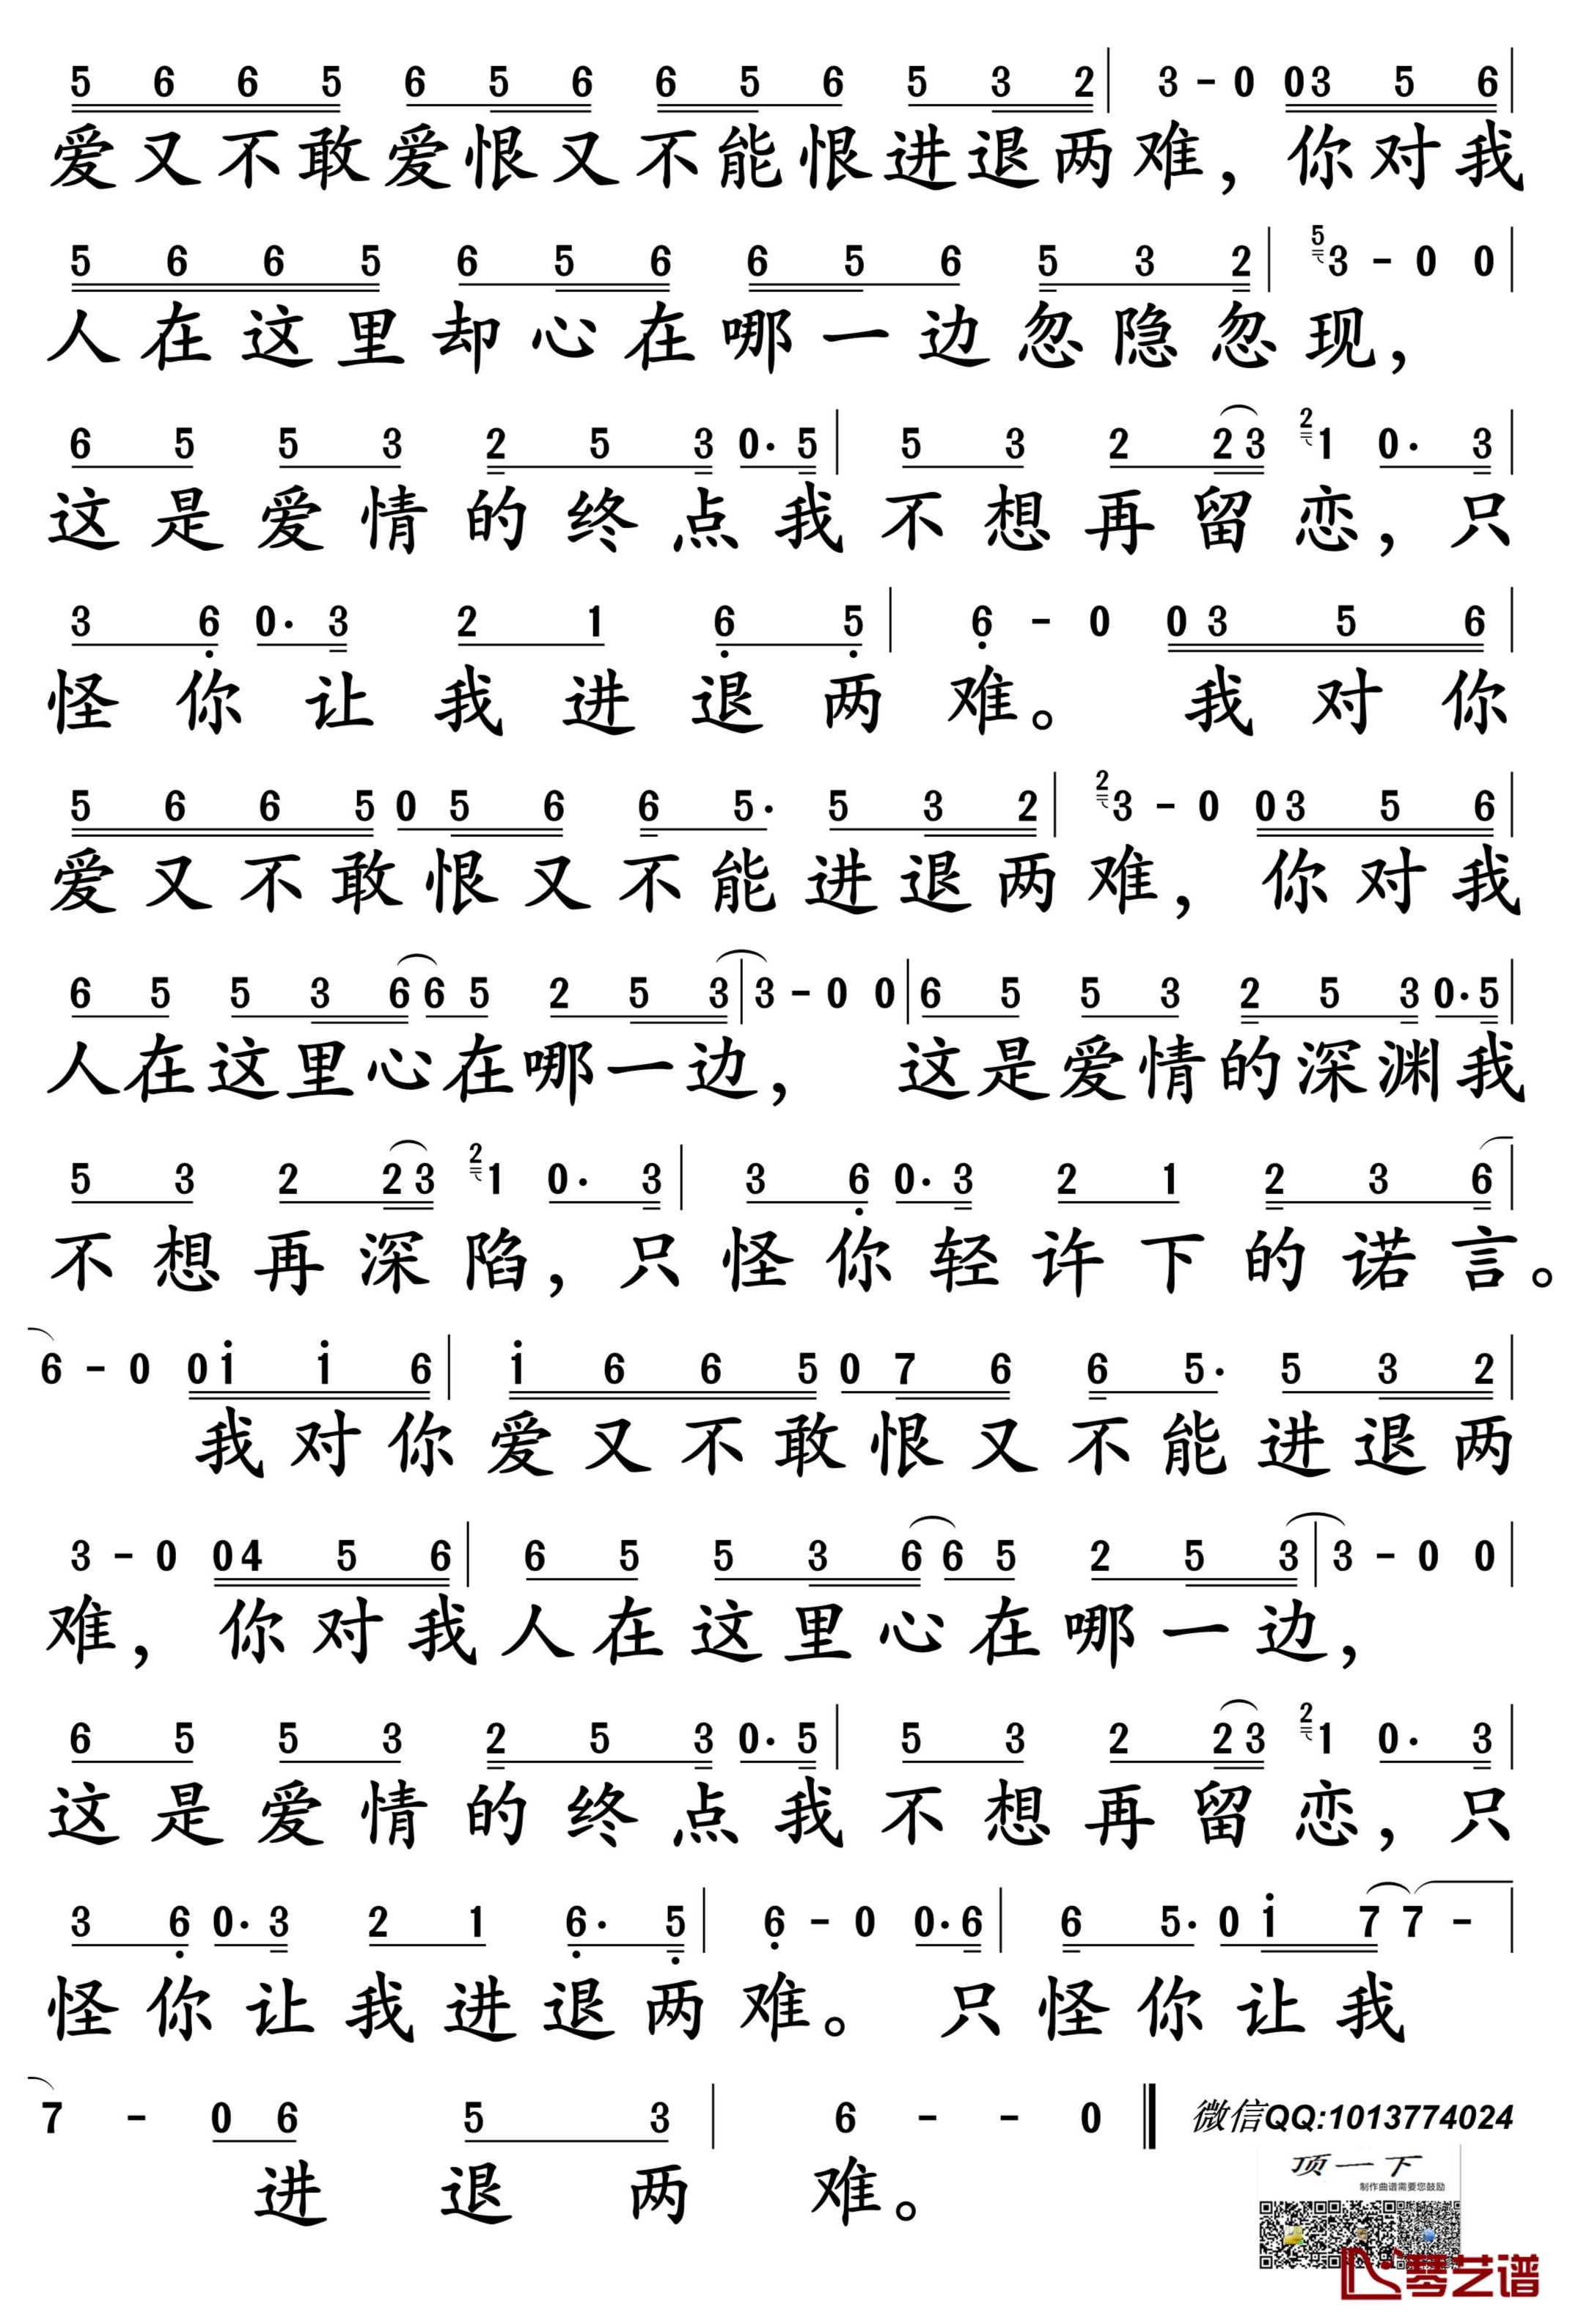 5 6 6 5 6 5 6 6 5 6 5 3 2 | 3 - 0 03 5 6 |
爱又不敢爱恨又不能恨进退两难，你对我
5 6 6 5 6 5 6 6 5 6 5 3 2 | 5 3 - 0 0 |
人在这里却心在哪一边忽隐忽现，
6 5 5 3 2 5 3 0· 5 | 5 3 2 2 3 2 1 0· 3 |
这是爱情的终点我不想再留恋，只
3 6 0· 3 2 1 6 5 | 6 - 0 0 3 5 6 |
怪你让我进退两难。我对你
5 6 6 5 0 5 6 6 5· 5 3 2 | 2 3 - 0 03 5 6 |
爱又不敢恨又不能进退两难，你对我
6 5 5 3 6 6 5 2 5 3 | 3 - 0 0 | 6 5 5 3 2 5 3 0· 5 |
人在这里心在哪一边，这是爱情的深渊我
5 3 2 2 3 2 1 0· 3 | 3 6 0· 3 2 1 2 3 6 |
不想再深陷，只怪你轻许下的诺言。
6 - 0 0 i i 6 | i 6 6 5 0 7 6 6 5· 5 3 2 |
我对你爱又不敢恨又不能进退两
3 - 0 04 5 6 | 6 5 5 3 6 6 5 2 5 3 | 3 - 0 0 |
难，你对我人在这里心在哪一边，
6 5 5 3 2 5 3 0· 5 | 5 3 2 2 3 2 1 0· 3 |
这是爱情的终点我不想再留恋，只
3 6 0· 3 2 1 6· 5 | 6 - 0 0· 6 | 6 5· 0 i 7 7 - |
怪你让我进退两难。只怪你让我
7 - 0 6 5 3 | 6 - - 0 ‖ 微信QQ:1013774024
进退两难。
顶一下
制作曲谱需要您鼓励
琴艺谱